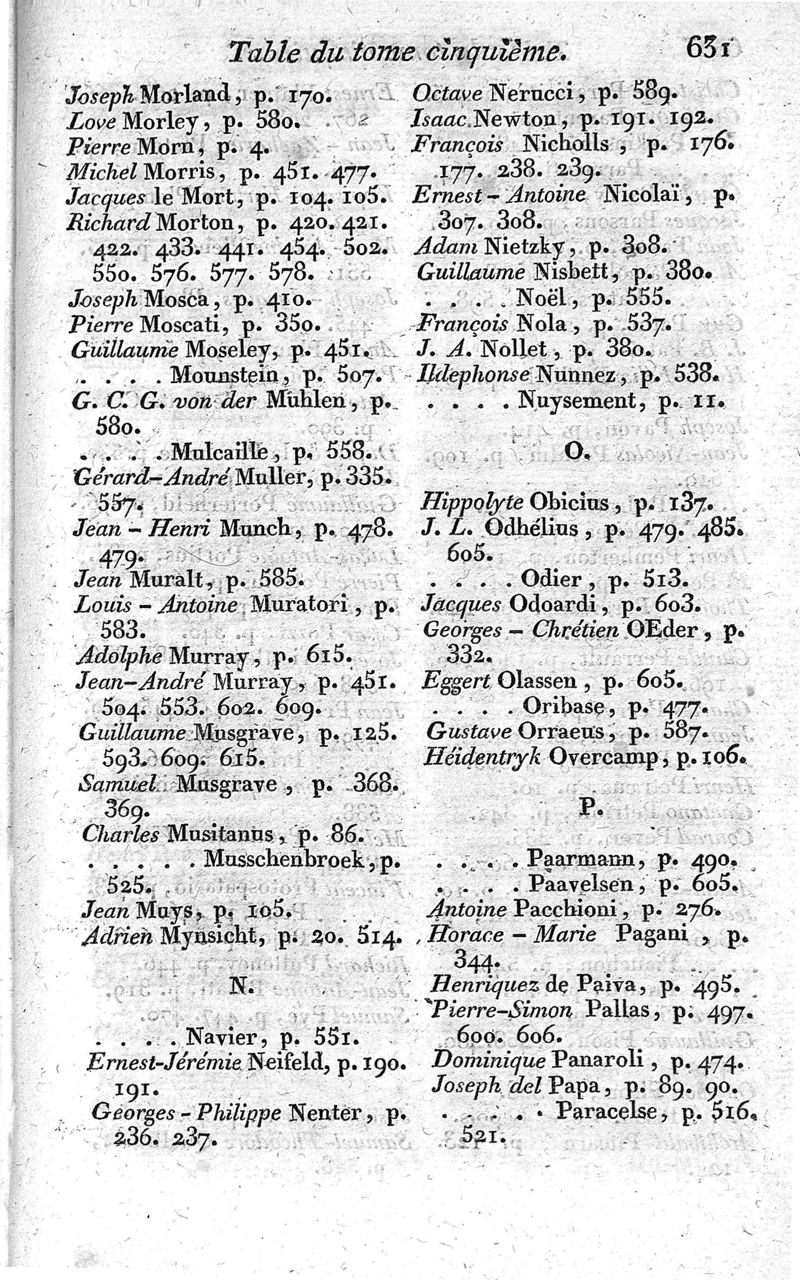 Table du tome cinquième. 631
Joseph Morland, p. 170.
Love Morley, p. 580.
Pierre Morn, p. 4.
Michel Morris, p. 451. 477.
Jacques le Mort, p. 104. 105.
Richard Morton, p. 420. 421.
422. 433. 441. 454. 502.
550. 576. 577. 578.
Joseph Mosca, p. 410.
Pierre Moscati, p. 350.
Guillaume Moseley, p. 451.
. . . . Mounstein, p. 507.
G. C. G. von der Muhlen, p.
580.
. . . . Mulcaille, p. 558.
Gérard-André Muller, p. 335.
557.
Jean - Henri Munch, p. 478.
479.
Jean Muralt, p. 585.
Louis - Antoine Muratori, p.
583.
Adolphe Murray, p. 615.
Jean-André Murray, p. 451.
504. 553. 602. 609.
Guillaume Musgrave, p. 125.
593. 609. 615.
Samuel Musgrave, p. 368.
369.
Charles Musitanus, p. 86.
. . . . . Musschenbroek, p.
525.
Jean Muys, p. 105.
Adrien Mynsicht, p. 20. 514.
N.
. . . . Navier, p. 551.
Ernest-Jérémie Neifeld, p. 190.
191.
Georges - Philippe Nenter, p.
236. 237.
Octave Nerucci, p. 589.
Isaac Newton, p. 191. 192.
François Nicholls, p. 176.
177. 238. 239.
Ernest - Antoine Nicolaï, p.
307. 308.
Adam Nietzky, p. 308.
Guillaume Nisbett, p. 380.
. . . . Noël, p. 555.
François Nola, p. 537.
J. A. Nollet, p. 380.
Ildephonse Nunnez, p. 538.
. . . . Nuysement, p. 11.
O.
Hippolyte Obicius, p. 137.
J. L. Odhélius, p. 479. 485.
605.
. . . . Odier, p. 513.
Jacques Odoardi, p. 603.
Georges - Chrétien OEder, p.
332.
Eggert Olassen, p. 605.
. . . . Oribase, p. 477.
Gustave Orraeus, p. 587.
Héidentryk Overcamp, p. 106.
P.
. . . . Paarmann, p. 490.
. . . . Paavelsen, p. 605.
Antoine Pacchioni, p. 276.
Horace - Marie Pagani, p.
344.
Henriquez de Paiva, p. 495.
Pierre-Simon Pallas, p. 497.
600. 606.
Dominique Panaroli, p. 474.
Joseph del Papa, p. 89. 90.
. . . . . Paracelse, p. 516.
521.